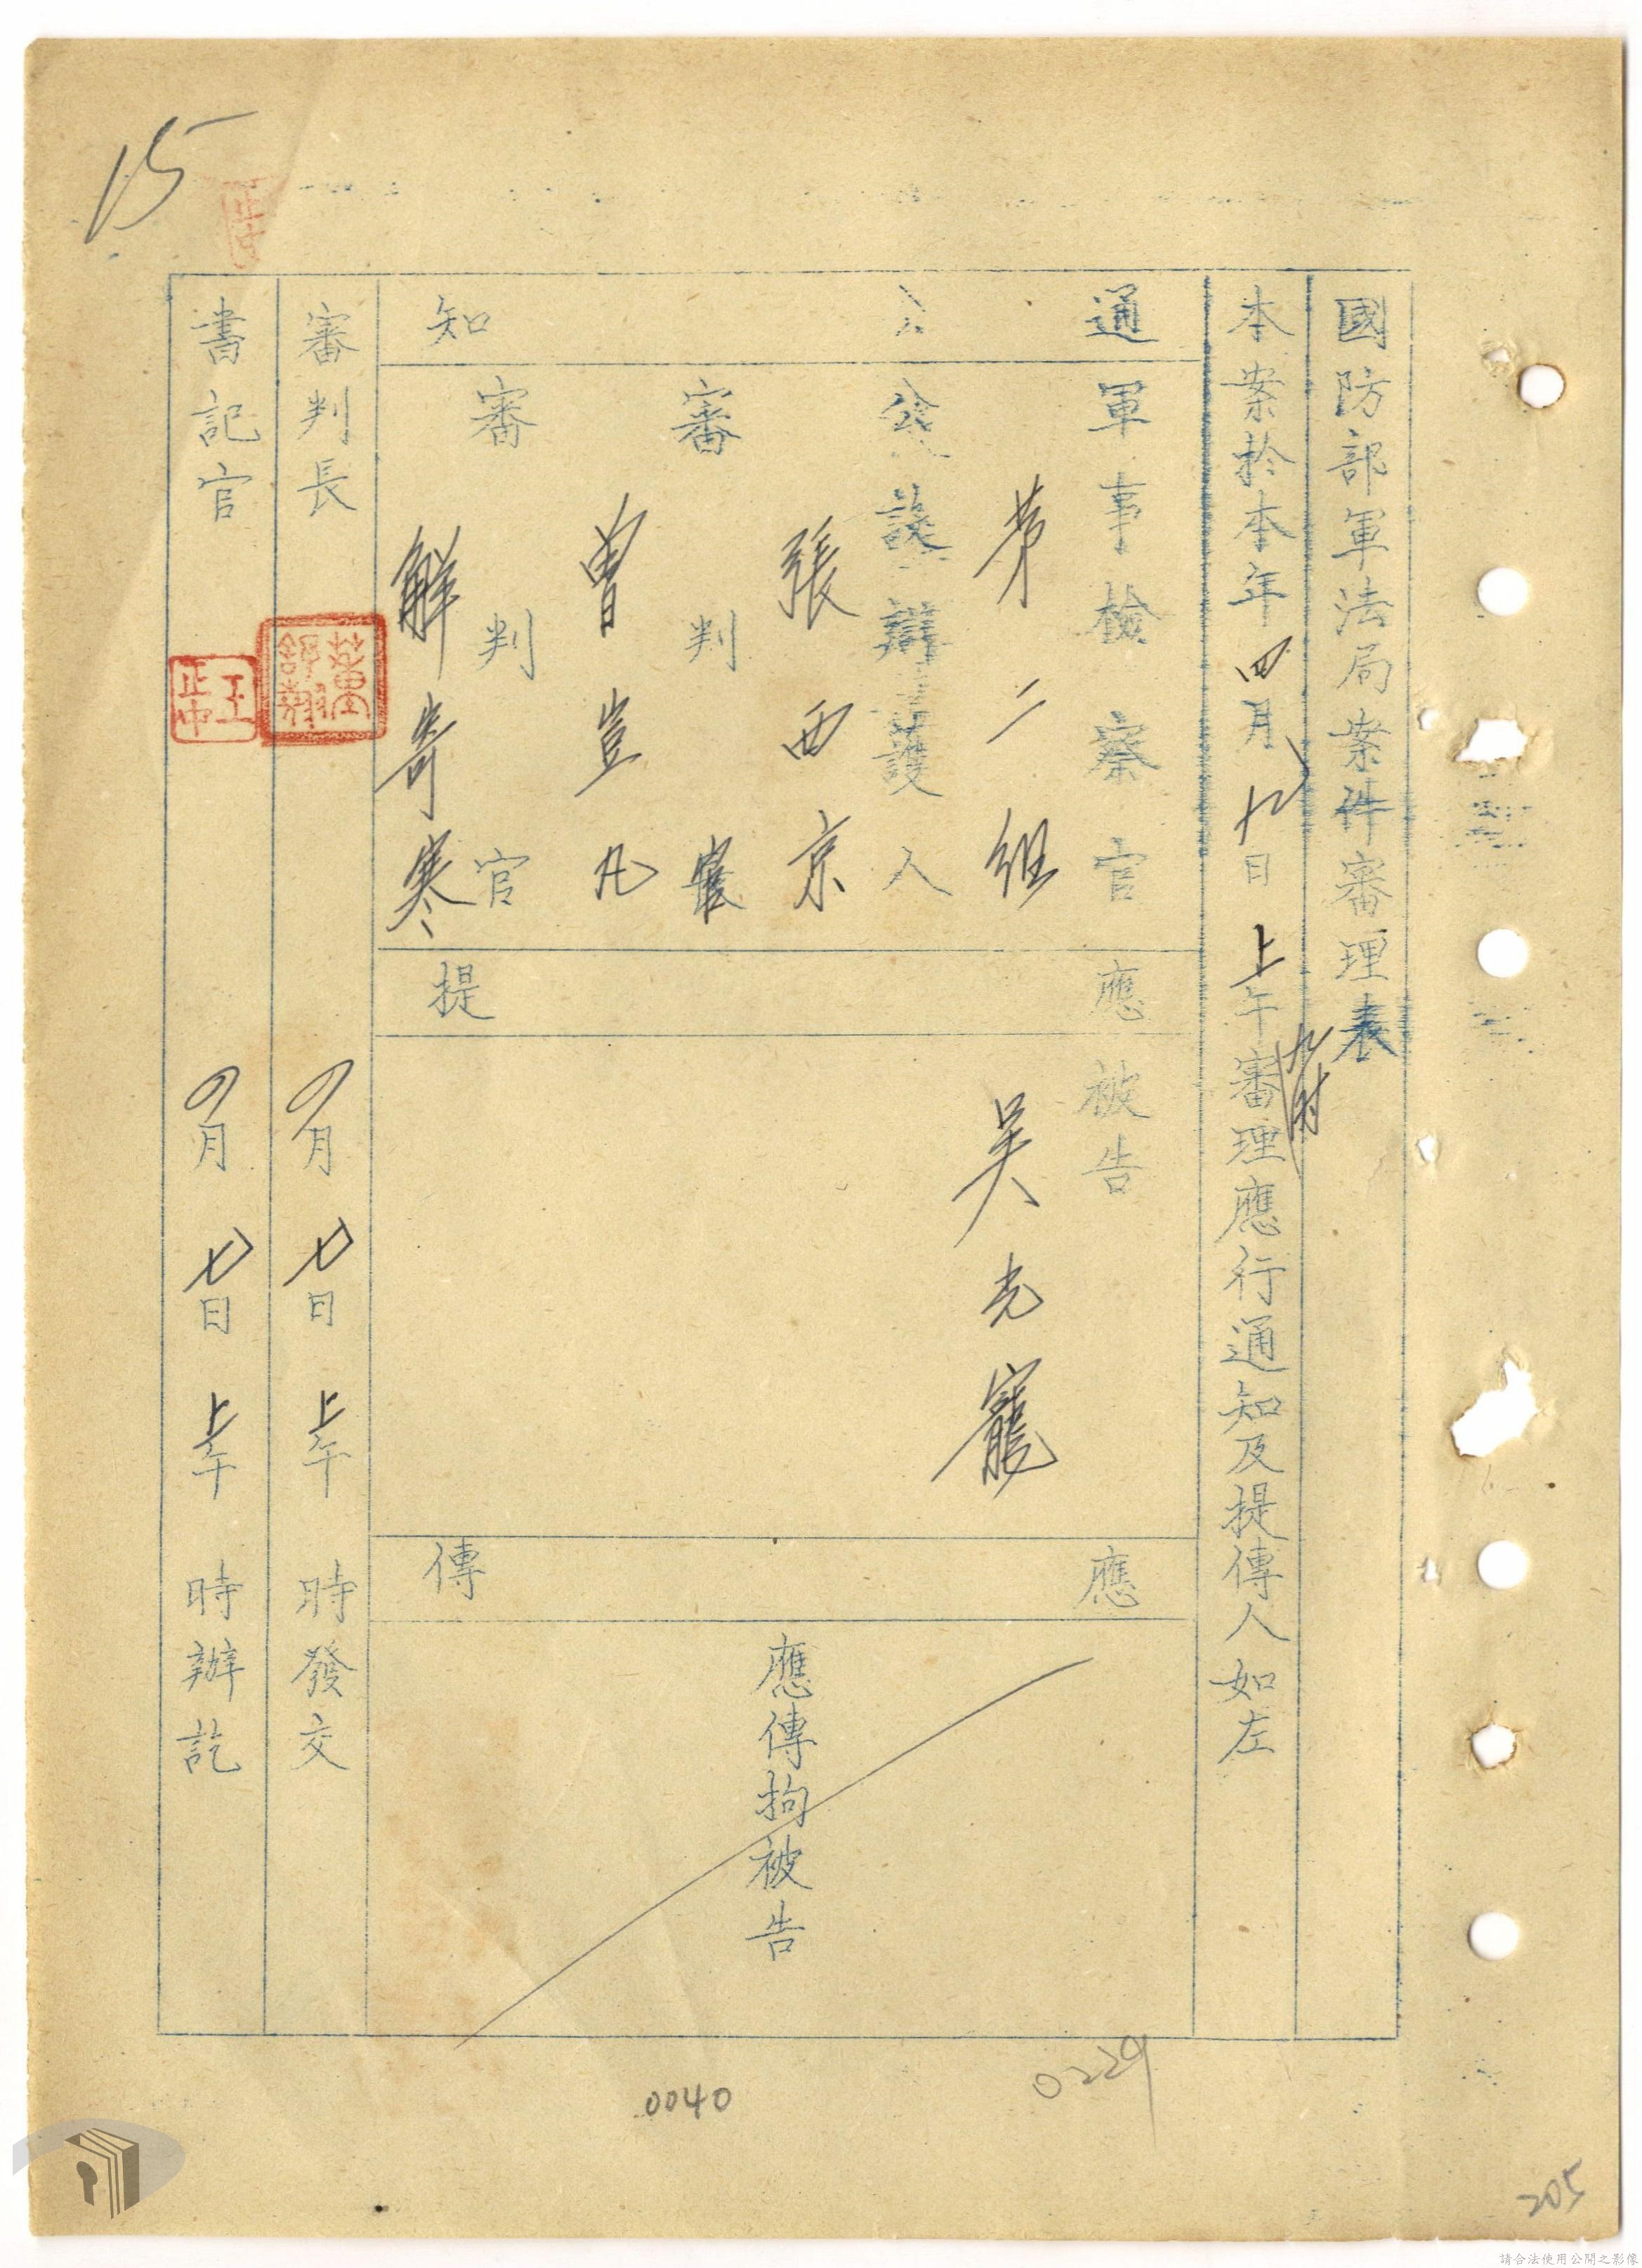 國防部軍法局案件審理表
本案於本年四月九日上午九時審理應行通知及提傳人如左
通知
軍事檢察官
第二組
公設辯護人
張西京
審判官
曾豈凡
審判官
解寄寒
應提
被告
吳光寵
應傳
應傳拘被告
審判長
四月七日上午 時發交
書記官
王正中
四月七日上午 時辦訖
15
0040
0229
205
請合法使用公開之影像